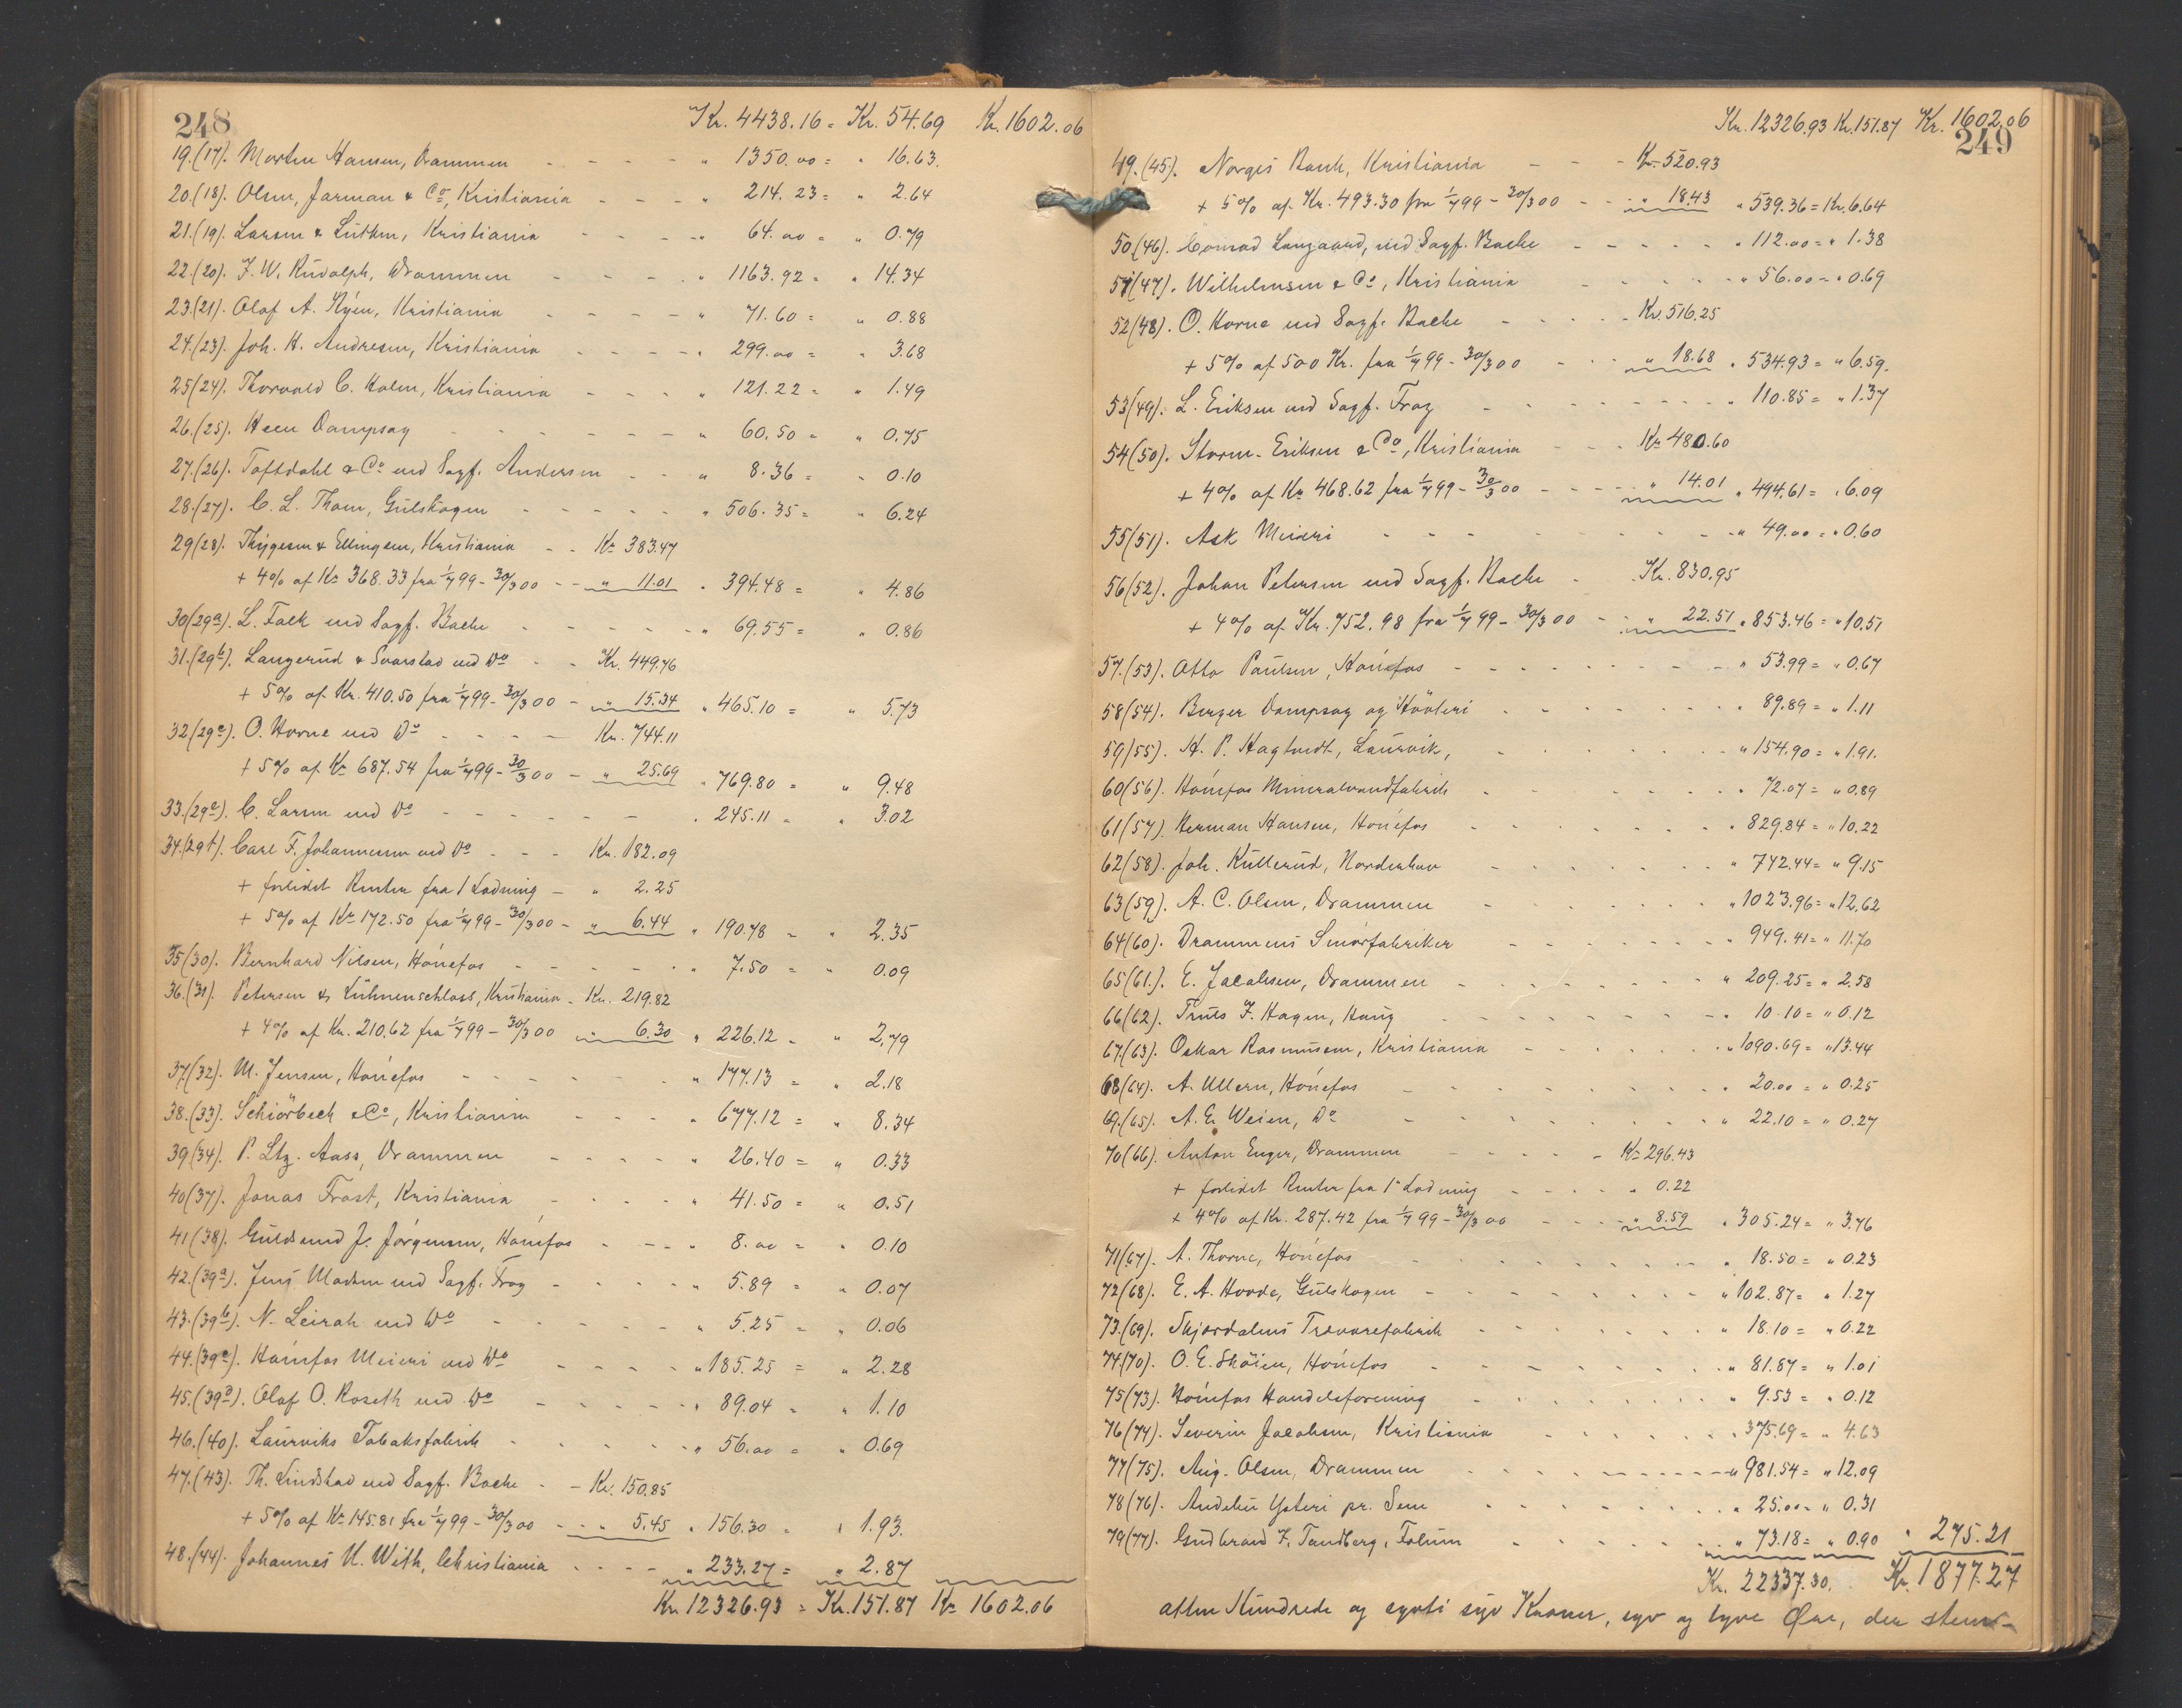 248
Kr. 4438.16 = Kr. 54.69 Kr. 1602.06
19.(17). Morten Hansen, Drammen - - - - " 1350.00 = " 16.63.
20.(18). Olsen, Jarman & Co, Kristiania - - - " 214.23 = " 2.64
21.(19). Larsen & Lütken, Kristiania - - - - " 64.00 = " 0.79
22.(20). F. W. Rudolph, Drammen - - - - " 1163.92 = " 14.34
23.(21). Olaf A. Ryen, Kristiania - - - - " 71.60 = " 0.88
24.(23). Joh. H. Andresen, Kristiania - - - - " 299.00 = " 3.68
25(24). Thorvald C. Holm, Kristiania - - - " 121.22 = " 1.49
26.(25). Heen Dampsag - - - - - - " 60.50 = " 0.75
27.(26). Toftdahl & Co ved Sagf. Andersen - - " 8.36 = " 0.10
28.(27). C. L. Thom, Gulskogen - - - - - " 506.35 = " 6.24
29(28). Thygesen & Ellingsen, Kristiania - - Kr 383.47
+ 4% af Kr 368.33 fra 1/7 99 - 30/3 00 - - " 11.01 " 394.48 = " 4.86
30(29a). L. Falk ved Sagf. Bache - - - - - " 69.55 = " 0.86
31.(29b). Langerud & Svarstad ved Do - - Kr. 449.76
+ 5% af Kr. 410.50 fra 1/7 99 - 30/3 00 - " 15.34 " 465.10 = " 5.73
32(29c). O. Horne ved Do - - - - Kr. 744.11
+ 5% af Kr 687.54 fra 1/7 99 - 30/3 00 - " 25.69 " 769.80 = " 9.48
33.(29e). C. Larsen ved Do - - - - - - " 245.11 = " 3.02
34.(29f). Carl F. Johannessen ved Do - - - Kr. 182.09
+ forlidet Renter fra 1 Lodning - " 2.25
+ 5% af Kr 172.50 fra 1/7 99 - 30/3 00 - " 6.44 " 190.78 = " 2.35
35(30). Bernhard Nilsen, Hónefos - - - - - " 7.50 = " 0.09
36.(31). Petersen & Lühnenschloss, Kristiania - Kr. 219.82
+ 4% af Kr. 210.62 fra 1/7 99 - 30/3 00 " 6.30 " 226.12 = " 2.79
37(32). M. Jensen, Hónefos - - - - - " 177.13 = " 2.18
38.(33). Schiörbech & Co, Kristiania - - - - " 677.12 = " 8.34
39(34). P. Ltz. Aass, Drammen - - - - " 26.40 = " 0.33
40(37). Jonas Frost, Kristiania - - - - " 41.50 = " 0.51
41(38). Guldsmed J. Jörgensen, Hónefos - - - " 8.00 = " 0.10
42.(39a). Jens Madsen ved Sagf. Frog - - - - " 5.89 = " 0.07
43.(39b). N. Leirah ved Do - - - - - " 5.25 = " 0.06
44.(39c). Hónefos Meieri ved Do - - - - " 185.25 = " 2.28
45.(39d). Olaf O. Roseth ved Do - - - - - " 89.04 = " 1.10
46.(40). Laurviks Tobaksfabrik - - - - - " 56.00 = " 0.69
47.(43). Th. Lindstad ved Sagf. Bache - - Kr. 150.85
+ 5% af Kr 145.81 fra 1/7 99 - 30/3 00 - - " 5.45 " 156.30 = " 1.93.
48.(44). Johannes H. With, Christiania - - - - " 233.27 = " 2.87
Kr. 12326.93 = Kr. 151.87 Kr 1602.06
Kr. 12326.93 Kr. 151.87 Kr. 1602.06
249
49.(45). Norges Bank, Kristiania - - - Kr. 520.93
+ 5% af Kr. 493.30 fra 1/7 99 - 30/3 00 - - " 18.43 " 539.36 = Kr. 6.64
50(46). Conrad Langaard, ved Sagf. Bache - - - - - " 112.00 = " 1.38
51(47). Wilhelmsen & Co, Kristiania - - - - " 56.00 = " 0.69
52(48). O. Horne ved Sagf. Bache - - - - Kr. 516.25
+ 5% af 500 Kr. fra 1/7 99 - 30/3 00 - - " 18.68 " 534.93 = " 6.59.
53(49). L. Eriksen ved Sagf. Frog - - - - - - - " 110.85 = " 1.37
54(50). Storm-Eriksen & Co, Kristiania - - - Kr 480.60
+ 4% af Kr 468.62 fra 1/7 99 - 30/3 00 - - - " 14.01 " 494.61 = " 6.09
55(51). Ask Meieri - - - - - - - - - " 49.00 = " 0.60
56(52). Johan Petersen ved Sagf. Bache - Kr. 830.95
+ 4% af Kr. 752.98 fra 1/7 99 - 30/3 00 - - " 22.51 " 853.46 = " 10.51
57.(53). Otto Paulsen, Hónefos - - - - - - - - " 53.99 = " 0.67
58(54). Berger Dampsag og Hövleri - - - - - - - " 89.89 = " 1.11
59(55). H. P. Hagtvedt, Laurvik, - - - - - - " 154.90 = " 1.91.
60(56). Hónefos Mineralvandfabrik - - - - - - " 72.07 = " 0.89
61(57). Herman Hansen, Hónefos - - - - - - - " 829.84 = " 10.22
62(58). Joh. Kullerud, Norderhov - - - - - - " 742.44 = " 9.15
63(59). A. C. Olsen, Drammen - - - - - - " 1023.96 = " 12.62
64(60). Drammens Smörfabriker - - - - - - " 949.41 = " 11.70
65(61). E. Jacobsen, Drammen - - - - - - - " 209.25 = " 2.58
66(62). Truls F. Hagen, Haug - - - - - - - - " 10.10 = " 0.12
67.(63). Oskar Rasmussen, Kristiania - - - - - - " 1090.69 = " 13.44
68(64). A. Ullern, Hónefos - - - - - - - - " 20.00 = " 0.25
69.(65). A. E. Weien, Do - - - - - - - - " 22.10 = " 0.27
70(66). Anton Enger, Drammen - - - - - Kr 296.43
+ forlidet Renter fra 1ste Lodning - - - - " 0.22
+ 4% af Kr. 287.42 fra 1/7 99 - 30/3 00 - - - " 8.59 " 305.24 = " 3.76
71(67). A. Thorne, Hónefos - - - - - - - - " 18.50 = " 0.23
72(68). E. A. Hovde, Gulskogen - - - - - - - - " 102.87 = " 1.27
73.(69). Skjærdalens Trævarefabrik - - - - - - " 18.10 = " 0.22
74(70). O. E. Sköien, Hónefos - - - - - - - - " 81.87 = " 1.01
75(73). Hónefos Handelsforening - - - - - - " 9.53 = " 0.12
76(74). Severin Jacobsen, Kristiania - - - - - - " 375.69 = " 4.63
77(75). Aug. Olsen, Drammen - - - - - - - - " 981.54 = " 12.09
78(76). Andebu Ysteri pr. Sem - - - - - - - " 25.00 = " 0.31
79(77). Gudbrand F. Tandberg, Folum - - - - - - " 73.18 = " 0.90 " 275.21
Kr. 22337.30. Kr. 1877.27
atten Hundrede og sytti syv Kroner, syv og tyve Øre, der stem-